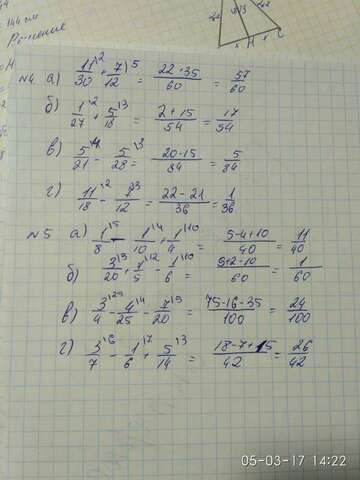 = 144 см
Решение
42
42
H
C
№4 а) 11/30 \2 + 7/12 \5 = 22+35/60 = 57/60
б) 1/27 \2 + 5/18 \3 = 2+15/54 = 17/54
в) 5/21 \4 - 5/28 \3 = 20-15/84 = 5/84
г) 11/18 \2 - 7/12 \3 = 22-21/36 = 1/36
№5 а) 1/8 \5 - 1/10 \4 + 1/4 \10 = 5-4+10/40 = 11/40
б) 3/20 \3 + 1/5 \12 - 1/6 \10 = 9+2-10/60 = 1/60
в) 3/4 \25 - 4/25 \4 - 7/20 \5 = 75-16-35/100 = 24/100
г) 3/7 \6 - 1/6 \7 + 5/14 \3 = 18-7+15/42 = 26/42
05-03-17 14:22